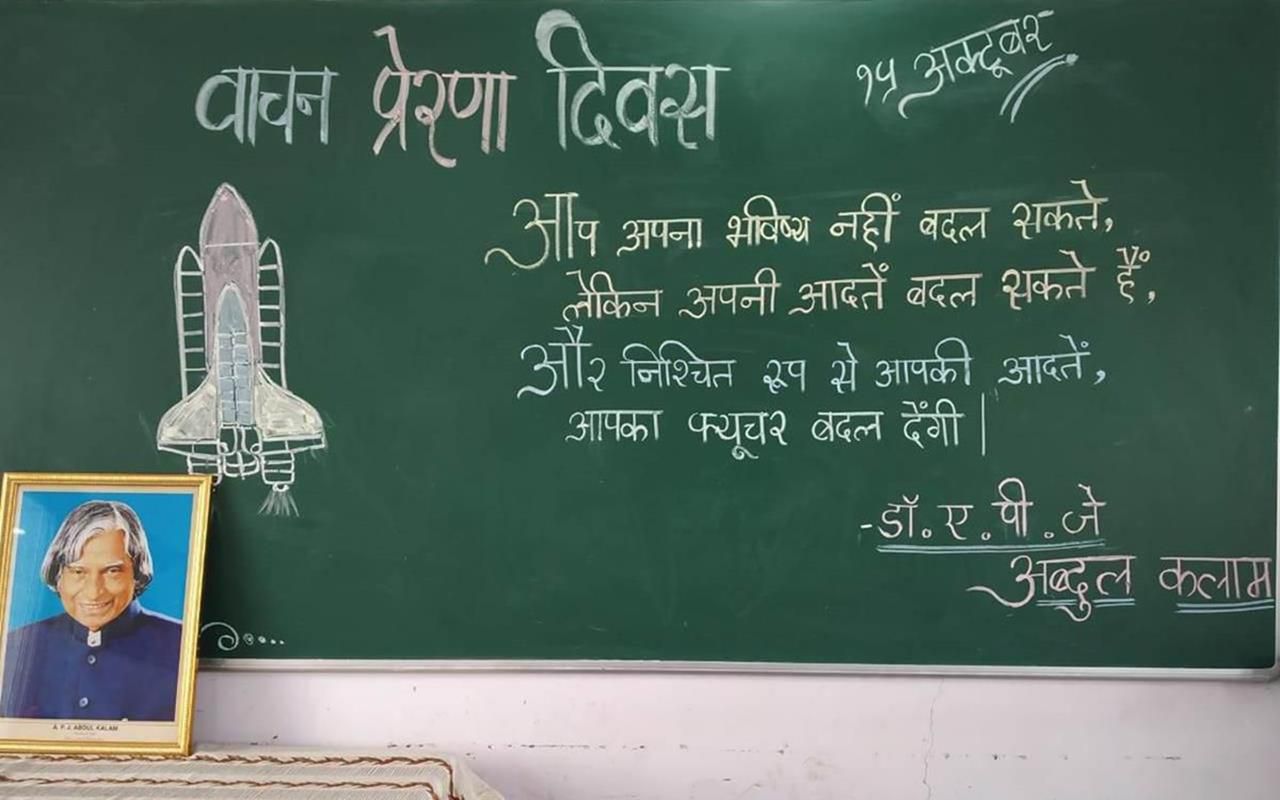 वाचन प्रेरणा दिवस
१५ अक्टूबर
आप अपना भविष्य नहीं बदल सकते,
लेकिन अपनी आदतें बदल सकते हैं,
और निश्चित रूप से आपकी आदतें,
आपका फ्यूचर बदल देंगी |
- डॉ. ए. पी. जे
अब्दुल कलाम
A. P. J. ABDUL KALAM